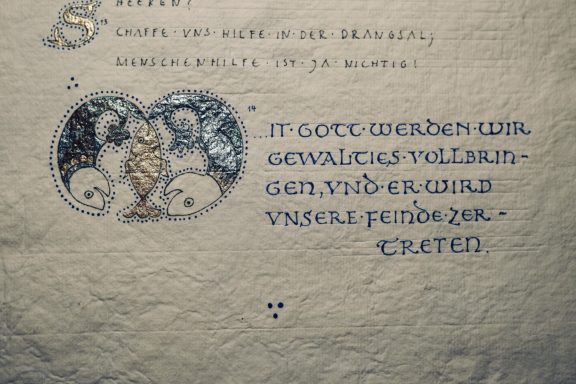 HEEREN?
13 SCHAFFE · VNS · HILFE · IN · DER · DRANGSAL;
MENSCHENHILFE · IST · JA · NICHTIG!
14 M...IT · GOTT · WERDEN · WIR
GEWALTIES · VOLLBRIN-
GEN, VND · ER · WIRD
VNSERE · FEINDE · ZER-
TRETEN.